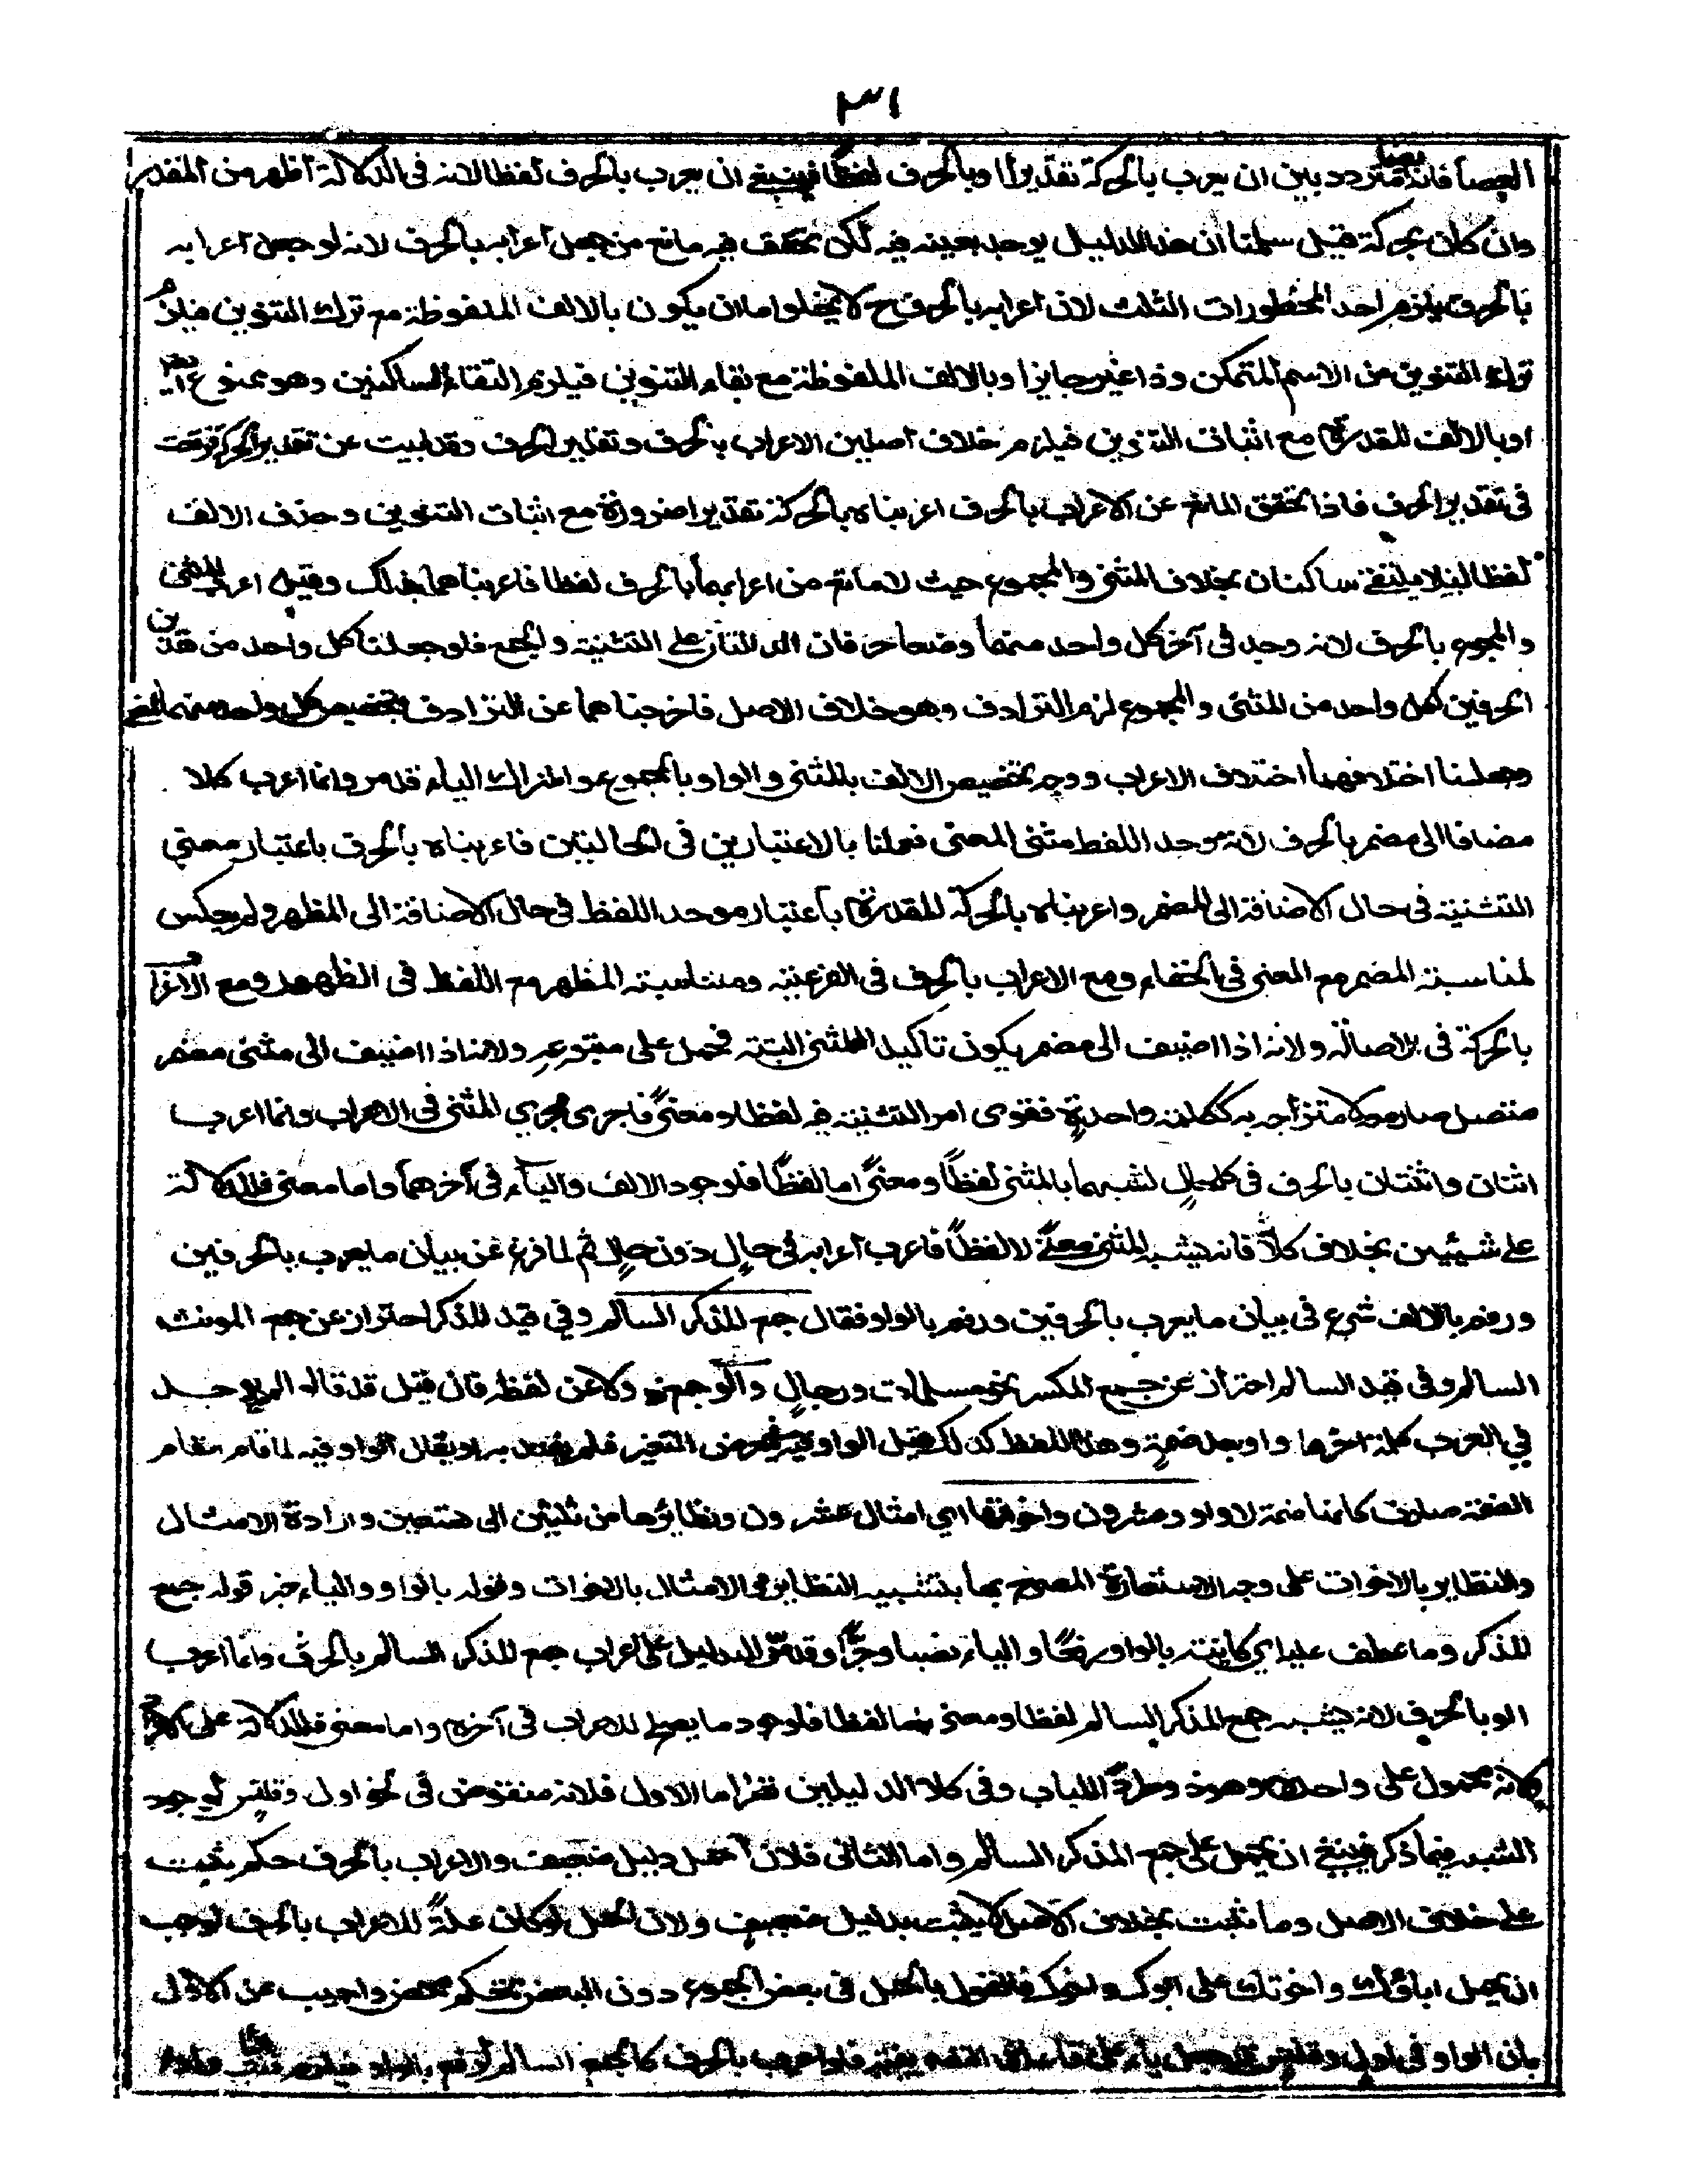 ٣١
العصا فانه متردد بين ان يعرب بالحركة تقديرا او بالحرف لفظا فينبغي ان يعرب بالحرف لفظا لانه في الدلالة اظهر من المقدر
وان كان بحركة قيل سلمنا ان هذا الدليل يوجد بعينه فيه لكن تحقق فيه مانع من جعل اعرابه بالحرف لانه لو جعل اعرابه
بالحرف يلزم احد المحظورات الثلث لان اعرابه بالحرف ح لا يخلوا ما ان يكون بالالف الملفوظة مع ترك التنوين فيلزم
ترك التنوين من الاسم المتمكن وذا غير جايز او بالالف الملفوظة مع بقاء التنوين فيلزم التقاء الساكنين وهو ممنوع
او بالالف المقدرة مع اثبات التنوين فيلزم خلاف اصلين الاعراب بالحرف وتقدير الحرف وقد ابيت عن تقدير الحركة فوقعت
في تقدير الحرف فاذا تحقق المانع عن الاعراب بالحرف اعربناه بالحركة تقديرا ضرورة مع اثبات التنوين وحذف الالف
لفظا ليلا يلتقي ساكنان بخلاف المثنى والمجموع حيث لا مانع من اعرابهما بالحرف لفظا فاعربناهما بذلك وقيل اعرب المثنى
والمجموع بالحرف لانه وجد في آخر كل واحد منهما وضعا حرفان الدالتان على التثنية والجمع فلو جعلنا كل واحد من هذين
الحرفين لكل واحد من المثنى والمجموع لزم الترادف وهو خلاف الاصل فاخرجناهما عن الترادف بتخصيص كل واحد منهما
وجعلنا اختلافهما اختلاف الاعراب ووجه تخصيص الالف بالمثنى والواو بالمجموع واشتراك الياء قد مر وانما اعرب كلا
مضافا الى مضمر بالحرف لانه موحد اللفظ مثنى المعنى فعملنا بالاعتبارين في الحالتين فاعربناه بالحرف باعتبار معنى
التثنية في حال الاضافة الى المضمر واعربناه بالحركة المقدرة باعتبار موحد اللفظ في حال الاضافة الى المظهر ولم يعكس
لمناسبة المضمر مع المعنى في الخفاء ومع الاعراب بالحرف في الفرعية ومناسبة المظهر مع اللفظ في الظهور ومع الاعراب
بالحركة في الاصالة ولانه اذا اضيف الى مضمر يكون تاكيد المثنى البتة فحمل على متبوعه ولانه اذا اضيف الى مثنى مضمر
متصل صار مع لامتزاجه به ككلمة واحدة فقوى امر التثنية فيه لفظا ومعنى فاجرى مجرى المثنى في الاعراب وانما اعرب
اثنان واثنتان بالحرف في كل حال لشبههما بالمثنى لفظا ومعنى اما لفظا فلوجود الالف والياء في آخرهما واما معنى فللدلالة
على شيئين بخلاف كلا فانه يشبه المثنى معنى لا لفظا فاعرب اعرابه في حال دون حال ثم لما فرغ عن بيان ما يعرب بالحرفين
ورفعه بالالف شرع في بيان ما يعرب بالحرفين ورفعه بالواو فقال جمع المذكر السالم وفي قيد المذكر احتراز عن جمع المونث
السالم وفي قيد السالم احتراز عن جمع المكسر نحو مسلمات ورجال والو جمع ذو لا عن لفظه فان قيل قد قالوا لم يوجد
في العرب كلمة آخرها واو بعد ضمة وهذا اللفظ كذلك قيل الواو فيه في معرض التغير فلم يعتد به او يقال الواو فيه لما قام مقام
الضمة صارت كانها ضمة لا واو وعشرون واخواتها اي امثال عشرون ونظايرها من ثلثين الى تسعين وارادة الامثال
والنظاير بالاخوات على وجه الاستعارة المصرح بها بتشبيه النظاير والامثال بالاخوات وقوله بالواو والياء خبر قوله جمع
المذكر وما عطف عليه اي كاينة بالواو رفعا والياء نصبا وجرا وقد مر الدليل على اعراب جمع المذكر السالم بالحرف وانما اعرب
الو بالحرف لانه يشبه جمع المذكر السالم لفظا ومعنى اما لفظا فلوجود ما يصلح للاعراب في آخره واما معنى فللدلالة على
ولانه محمول على واحده وهو ذو وطردا للباب وفي كلا الدليلين نظر اما الاول فلانه منقوض في نحو اول وقلنس لوجود
الشبه فيما ذكر فينبغي ان يحمل على جمع المذكر السالم واما الثاني فلان الحمل دليل ضعيف والاعراب بالحرف حكم يثبت
على خلاف الاصل وما يثبت بخلاف الاصل لا يثبت بدليل ضعيف ولان الحمل لو كان علة للاعراب بالحرف لوجب
ان يحمل اباؤك واخوتك على ابوك واخوك فالقول بالحمل في بعض الجموع دون البعض تحكم محض واجيب عن الاول
بان الواو في اولى وقلنس قد جعل ياء على قاعدة فلو اعرب بالحرف كالجمع السالم لرفع بالواو فيلزم